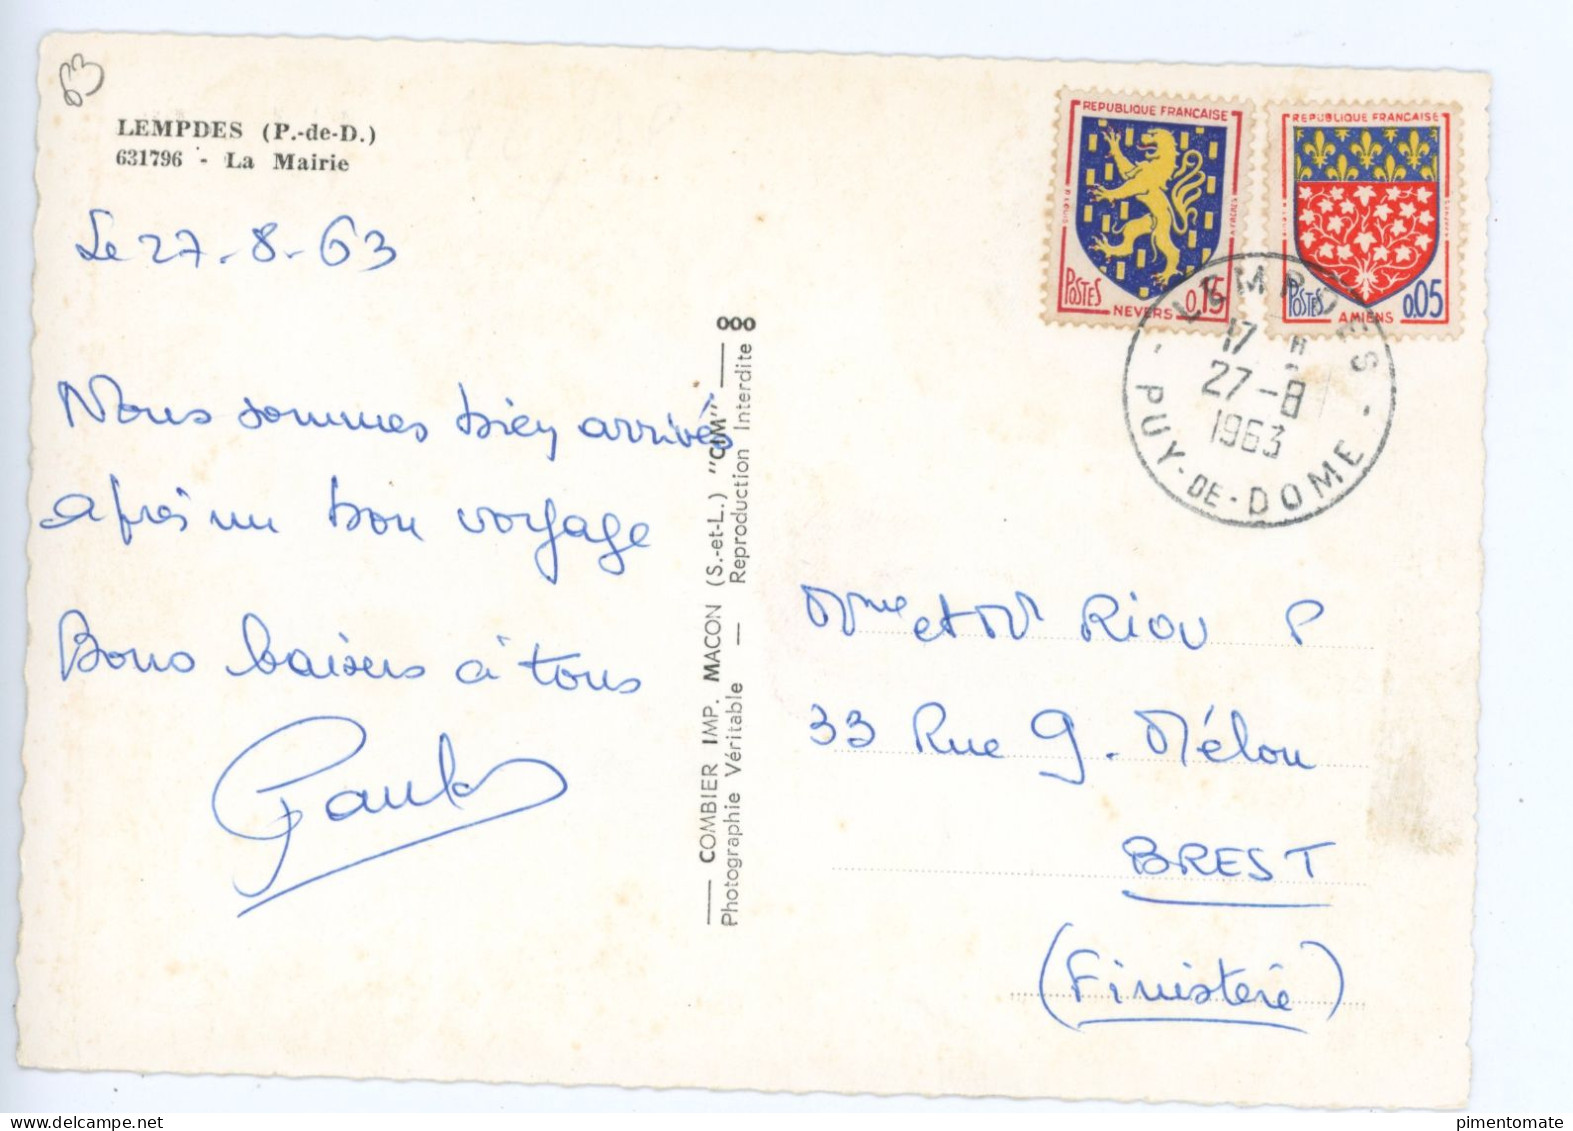 63
LEMPDES (P.-de-D.)
631796 - La Mairie
Le 27-8-63
Nous sommes bien arrivés
après un bon voyage
Bons baisers à tous
Paul
000
COMBIER IMP. MACON (S.-et-L.) "CIM"
Photographie Véritable — Reproduction Interdite
REPUBLIQUE FRANÇAISE
POSTES
0,15
NEVERS
REPUBLIQUE FRANÇAISE
POSTES
0,05
AMIENS
LEMPDES
17 H
27-8
1963
PUY-DE-DOME
Mme et Mr RIOU P
33 Rue G. Mélou
BREST
(Finistère)
pimentomate